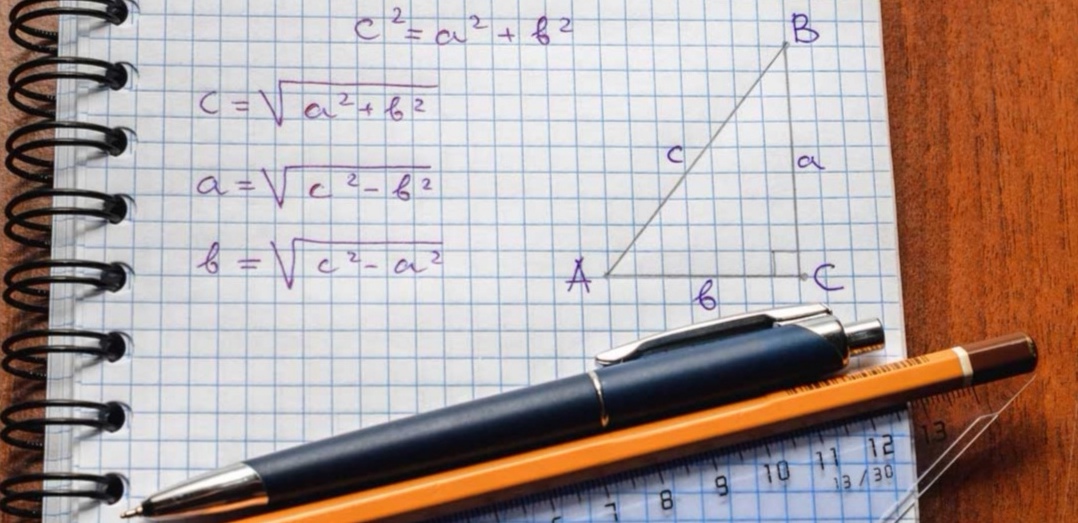 c² = a² + b²
c = √(a² + b²)
a = √(c² - b²)
b = √(c² - a²)
B
c
a
A
C
b
7
8
9
10
11
12
13
13/30